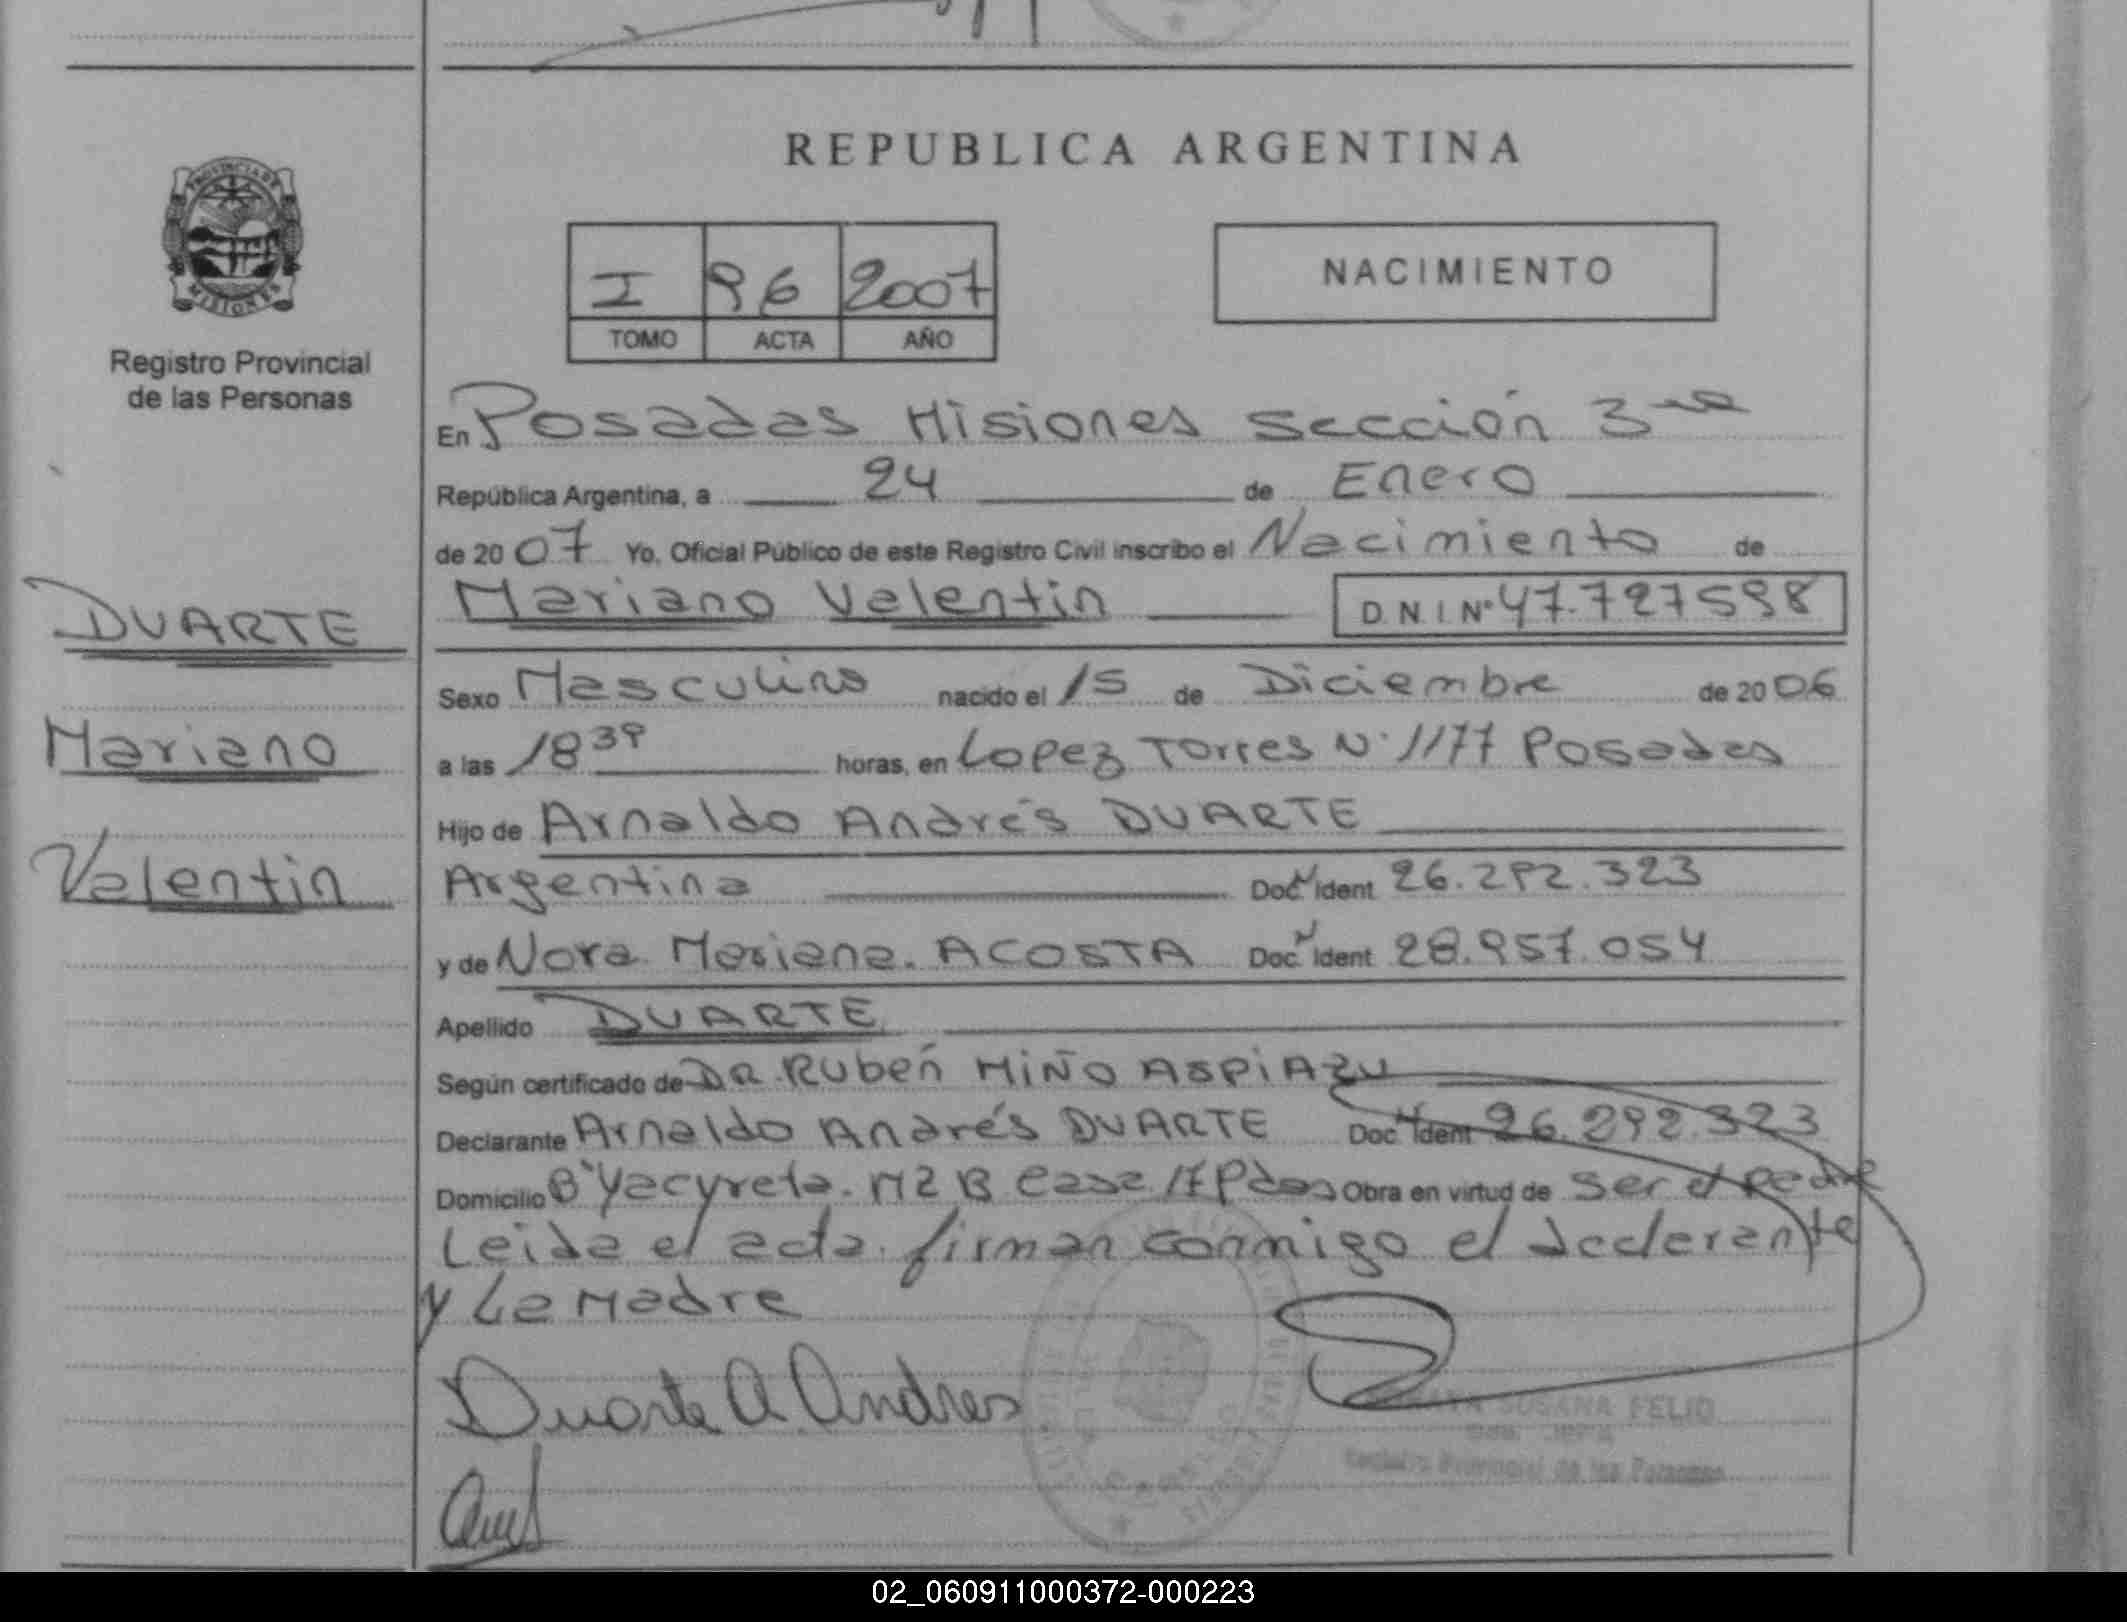 REPUBLICA ARGENTINA
PROVINCIA DE MISIONES
Registro Provincial
de las Personas
I 96 2007
TOMO ACTA AÑO
NACIMIENTO
En Posadas Misiones Sección 3ra
República Argentina, a 24 de Enero
de 2007 Yo, Oficial Público de este Registro Civil inscribo el Nacimiento de
Mariano Valentin D.N.I. Nº 47.727598
DUARTE
Mariano
Valentin
Sexo Masculino nacido el 15 de Diciembre de 2006
a las 18 39 horas, en Lopez Torres Nº 1177 Posadas
Hijo de Arnaldo Andrés DUARTE
Argentina Doc. Ident 26.292.323
y de Nora Mariana ACOSTA Doc. Ident 28.957.054
Apellido DUARTE
Según certificado de DR. Rubén MIÑO ASPIAZU
Declarante Arnaldo Andrés DUARTE Doc. Ident 26.292.323
Domicilio Bº Yacyreta. MZ B Casa 17 Pdas Obra en virtud de ser el padre
Leida el acta firman conmigo el declarante
y La Madre
Duarte A. Andres
SUSANA FELIO
Registro Provincial de las Personas
02_060911000372-000223